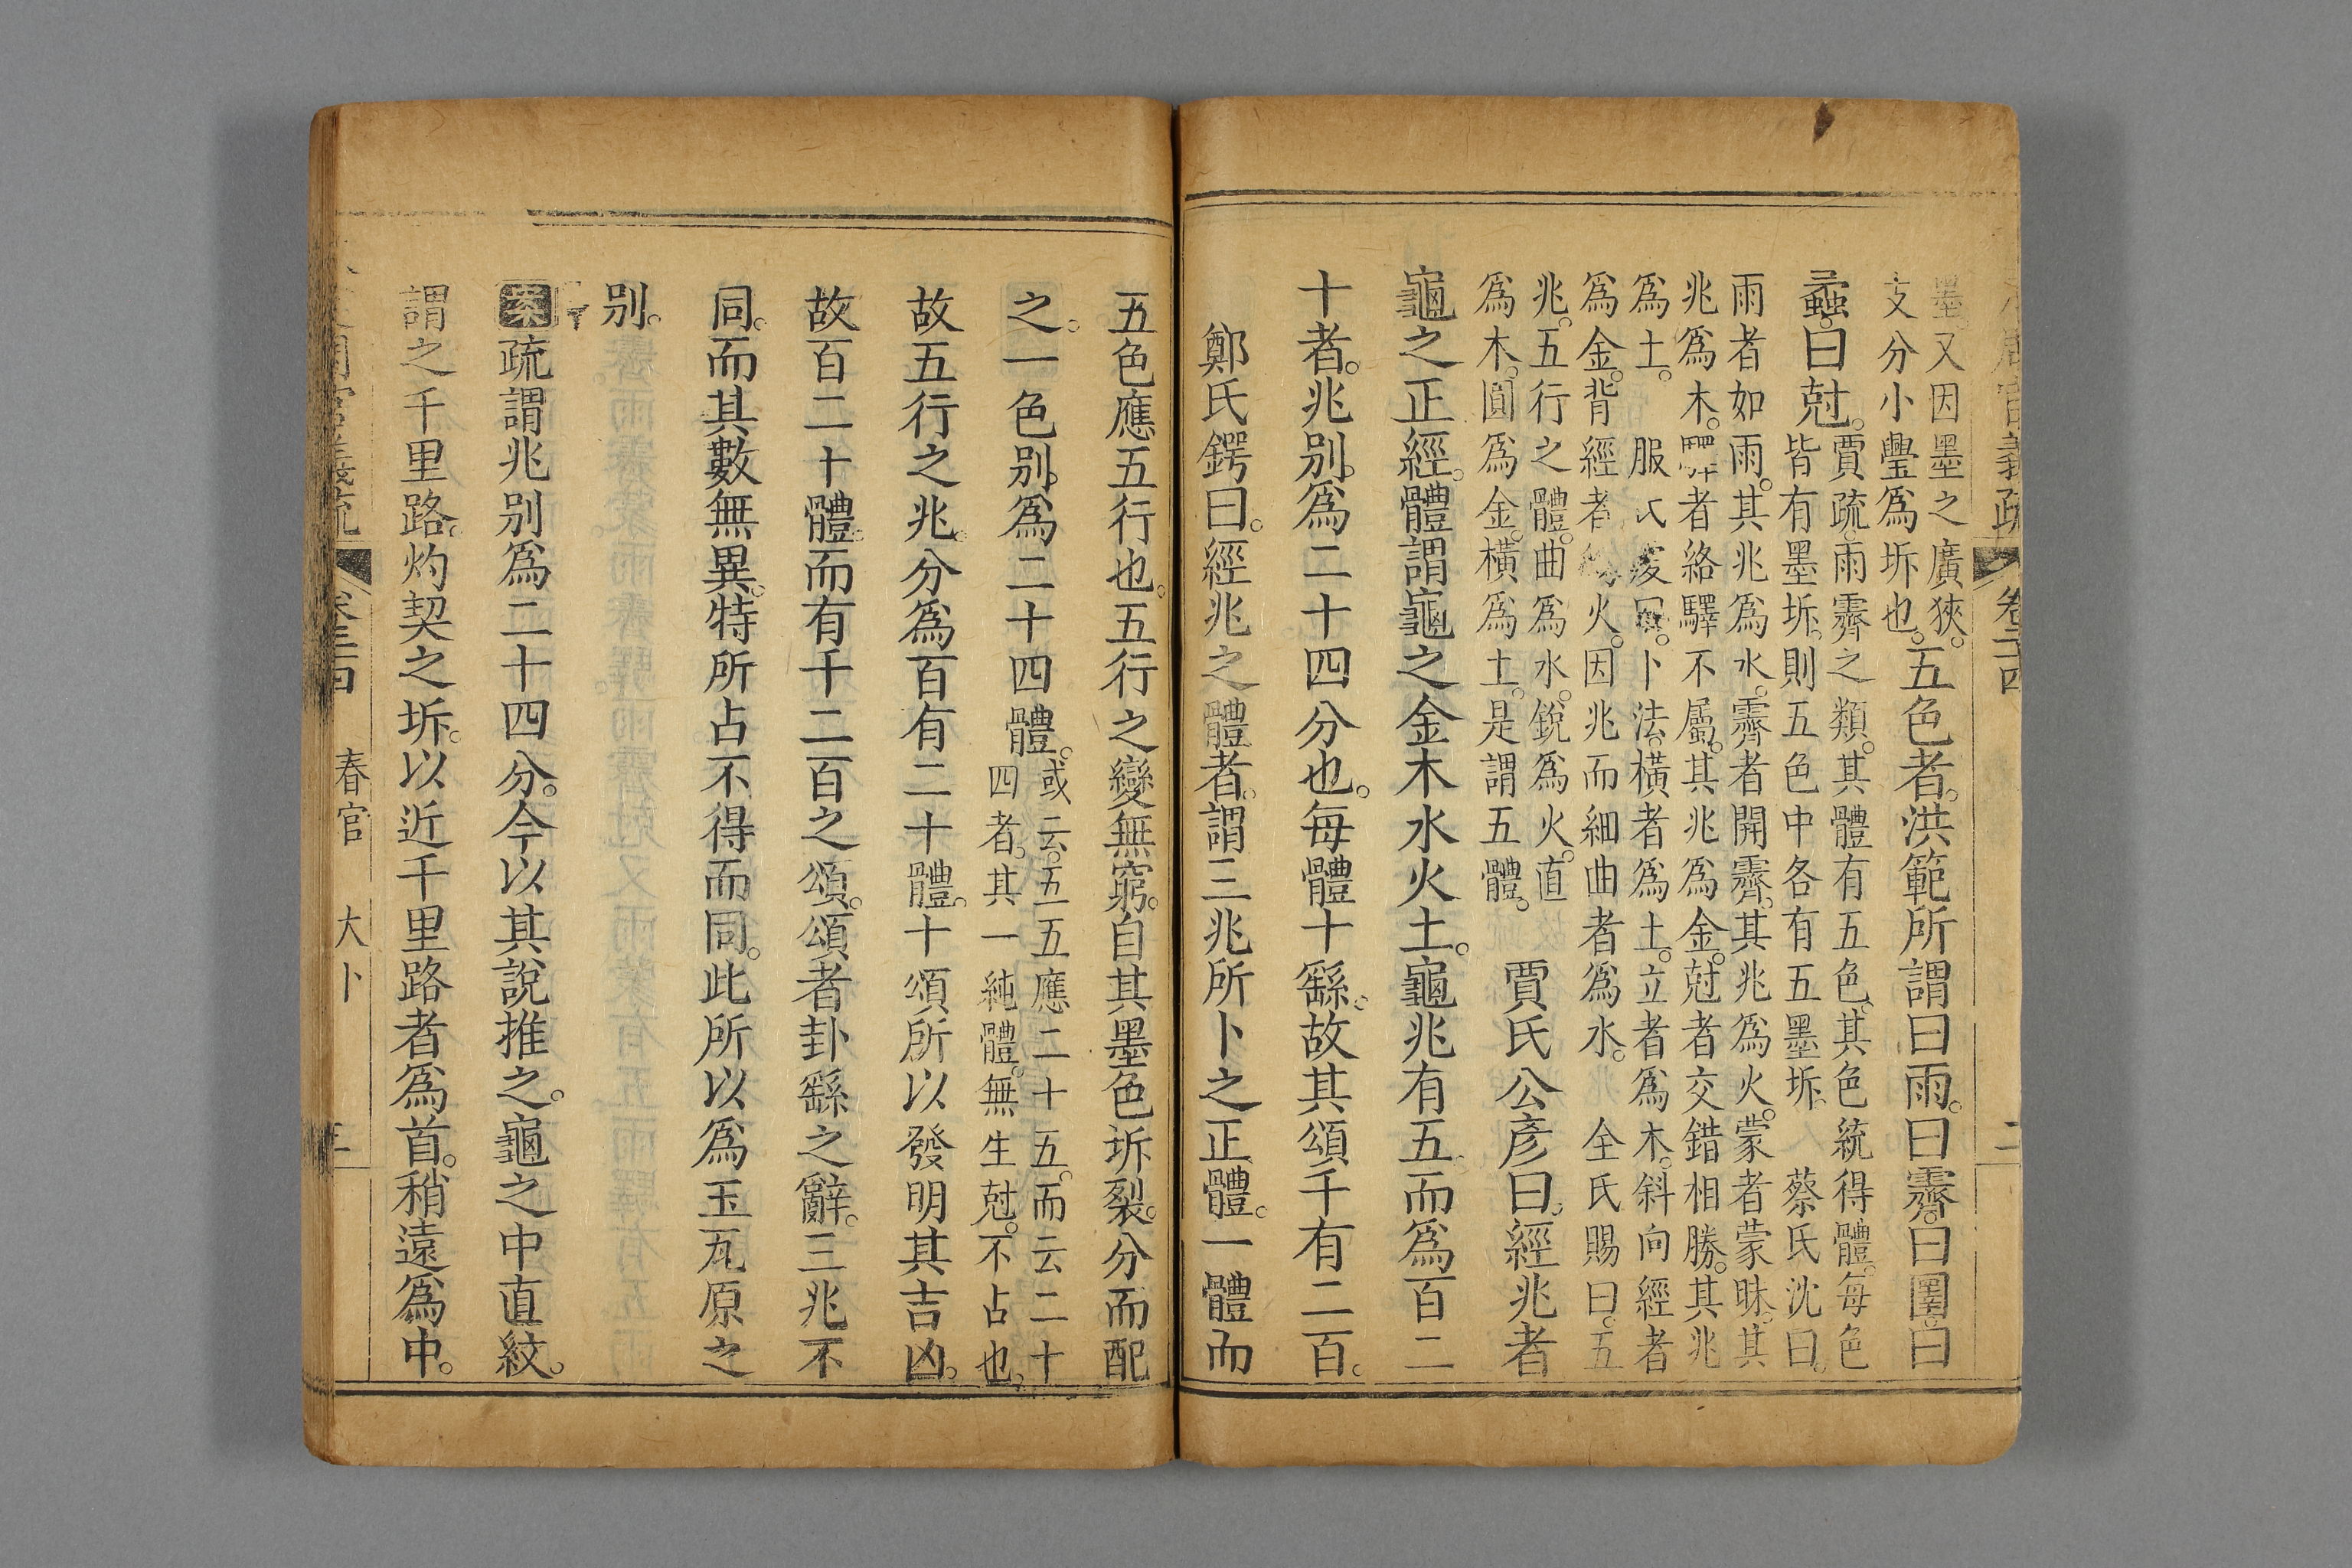 周官義疏 卷二十四 二
墨又因墨之廣狹
支分小璺爲坼也五色者洪範所謂曰雨曰霽曰圛曰
蟊曰尅賈疏雨霽之類其體有五色其色統得體每色
皆有墨坼則五色中各有五墨坼 蔡氏沈曰
雨者如雨其兆爲水霽者開霽其兆爲火蒙者蒙昧其
兆爲木 者絡驛不屬其兆爲金尅者交錯相勝其兆
爲土 服氏 曰卜法橫者爲土立者爲木斜向經者
爲金背經者爲火因兆而細曲者爲水 全氏賜曰五
兆五行之體曲爲水銳爲火直
爲木圓爲金橫爲土是謂五體 賈氏公彥曰經兆者
龜之正經體謂龜之金木水火土龜兆有五而爲百二
十者兆別爲二十四分也每體十繇故其頌千有二百
鄭氏鍔曰經兆之體者謂三兆所卜之正體一體而
五色應五行也五行之變無窮自其墨色坼裂分而配
之一色別爲二十四體或云五五應二十五而云二十
四者其一純體無生尅不占也
故五行之兆分爲百有二十體十頌所以發明其吉凶
故百二十體而有千二百之頌頌者卦繇之辭三兆不
同而其數無異特所占不得而同此所以爲玉瓦原之
別
案疏謂兆別爲二十四分今以其說推之龜之中直紋
謂之千里路灼契之坼以近千里路者爲首稍遠爲中
周官義疏 卷二十四 春官 大卜 三